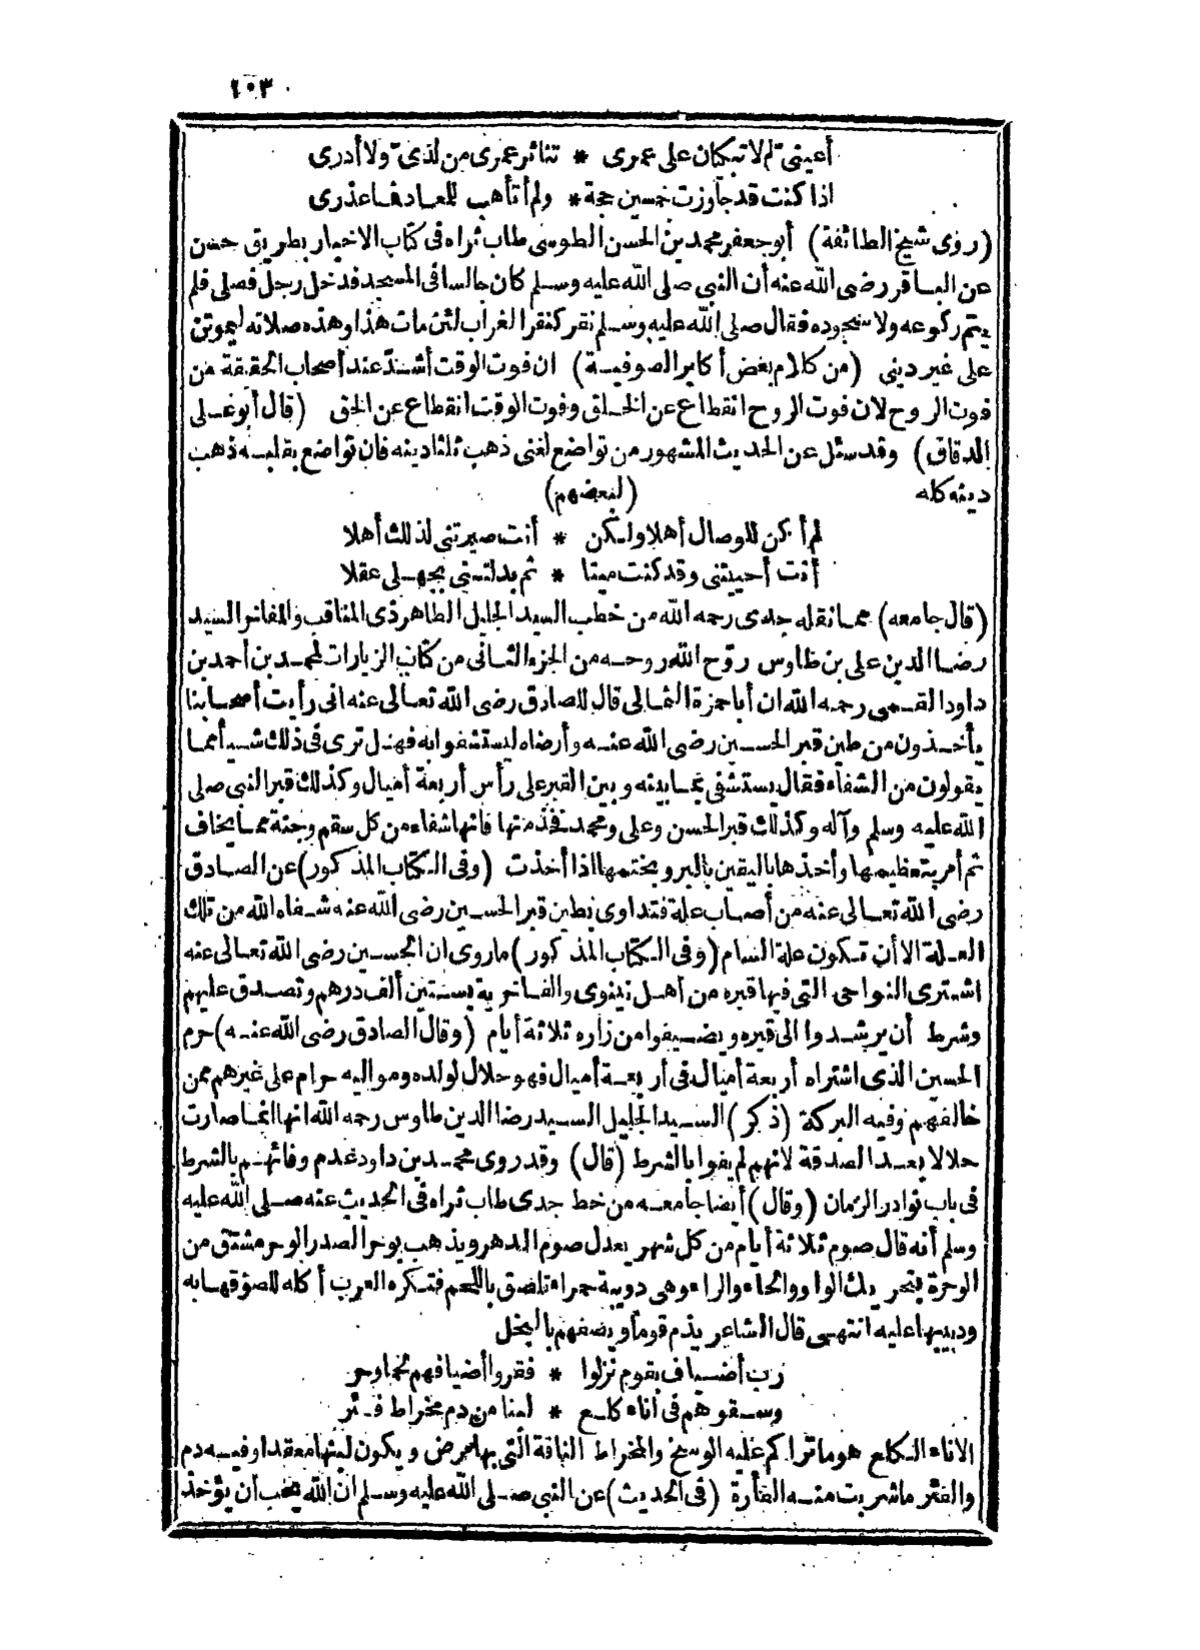 ١٠٣
أعيني لم لا تبكيان على عمرى * تناثر عمرى من لدىّ ولا أدرى
اذا كنت قد جاوزت خمسين حجة * ولم أتأهب للمعاد فما عذرى
(روى شيخ الطائفة) أبو جعفر محمد بن الحسن الطوسى طاب ثراه فى كتاب الاخبار بطريق حسن
عن الباقر رضى الله عنه أن النبى صلى الله عليه وسلم كان جالسا فى المسجد فدخل رجل فصلى فلم
يتم ركوعه ولا سجوده فقال صلى الله عليه وسلم نقر كنقر الغراب لئن مات هذا وهذه صلاته ليموتن
على غير دينى (من كلام بعض أكابر الصوفية) ان فوت الوقت أشدّ عند أصحاب الحقيقة من
فوت الروح لان فوت الروح انقطاع عن الخلق وفوت الوقت انقطاع عن الحق (قال أبو على
الدقاق) وقد سئل عن الحديث المشهور من تواضع لغنى ذهب ثلثا دينه فان تواضع بقلبه ذهب
دينه كله (لبعضهم)
لم أكن للوصال أهلا ولكن * أنت صيرتنى لذلك أهلا
أنت أحييتنى وقد كنت ميتا * ثم بدلتنى بجهلى عقلا
(قال جامعه) مما نقله جدى رحمه الله من خطب السيد الجليل الطاهر ذى المناقب والمفاخر السيد
رضا الدين على بن طاوس روّح الله روحه من الجزء الثانى من كتاب الزيارات لمحمد بن أحمد بن
داود القمى رحمه الله ان أبا حمزة الثمالى قال للصادق رضى الله تعالى عنه انى رأيت أصحابنا
يأخذون من طين قبر الحسين رضى الله عنه وأرضاه ليستشفوا به فهل ترى فى ذلك شيأ مما
يقولون من الشفاء فقال يستشفى بما بينه وبين القبر على رأس أربعة أميال وكذلك قبر النبى صلى
الله عليه وسلم وآله وكذلك قبر الحسن وعلى ومحمد فخذ منها فانها شفاء من كل سقم وجنة مما يخاف
ثم أمر بتعظيمها وأخذها باليقين بالبر وبختمها اذا أخذت (وفى الكتاب المذكور) عن الصادق
رضى الله تعالى عنه من أصابه علة فتداوى بطين قبر الحسين رضى الله عنه شفاه الله من تلك
العلة الا أن تكون علة السام (وفى الكتاب المذكور) ما روى ان الحسين رضى الله تعالى عنه
اشترى النواحى التى فيها قبره من أهل نينوى والغاضرية بستين ألف درهم وتصدق عليهم
وشرط أن يرشدوا الى قبره ويضيفوا من زاره ثلاثة أيام (وقال الصادق رضى الله عنه) حرم
الحسين الذى اشتراه أربعة أميال فى أربعة أميال فهو حلال لولده ومواليه حرام على غيرهم ممن
خالفهم وفيه البركة (ذكر) السيد الجليل السيد رضا الدين طاوس رحمه الله انها انما صارت
حلالا بعد الصدقة لانهم لم يفوا بالشرط (قال) وقد روى محمد بن داود عدم وفائهم بالشرط
فى باب نوادر الزمان (وقال) أيضا جامعه من خط جدى طاب ثراه فى الحديث عنه صلى الله عليه
وسلم أنه قال صوم ثلاثة أيام من كل شهر يعدل صوم الدهر ويذهب بوحر الصدر الوحر مشتق من
الوحرة بتحريك الواو والحاء والراء وهى دويبة حمراء تلصق باللحم فتكره العرب أكله للصوقها به
ودبيبها عليه انتهى قال الشاعر يذم قوما ويصفهم بالبخل
رب أضياف بقوم نزلوا * فقروا أضيافهم لحما وحر
وسقوهم فى اناء كلع * لبنا من دم مخراط فئر
الاناء الكلع هو ما تراكم عليه الوسخ والمخراط الناقة التى بها مرض ويكون لبنها معقدا وفيه دم
والفئر ما شربت منه الفأرة (فى الحديث) عن النبى صلى الله عليه وسلم ان الله يحب أن يؤخذ